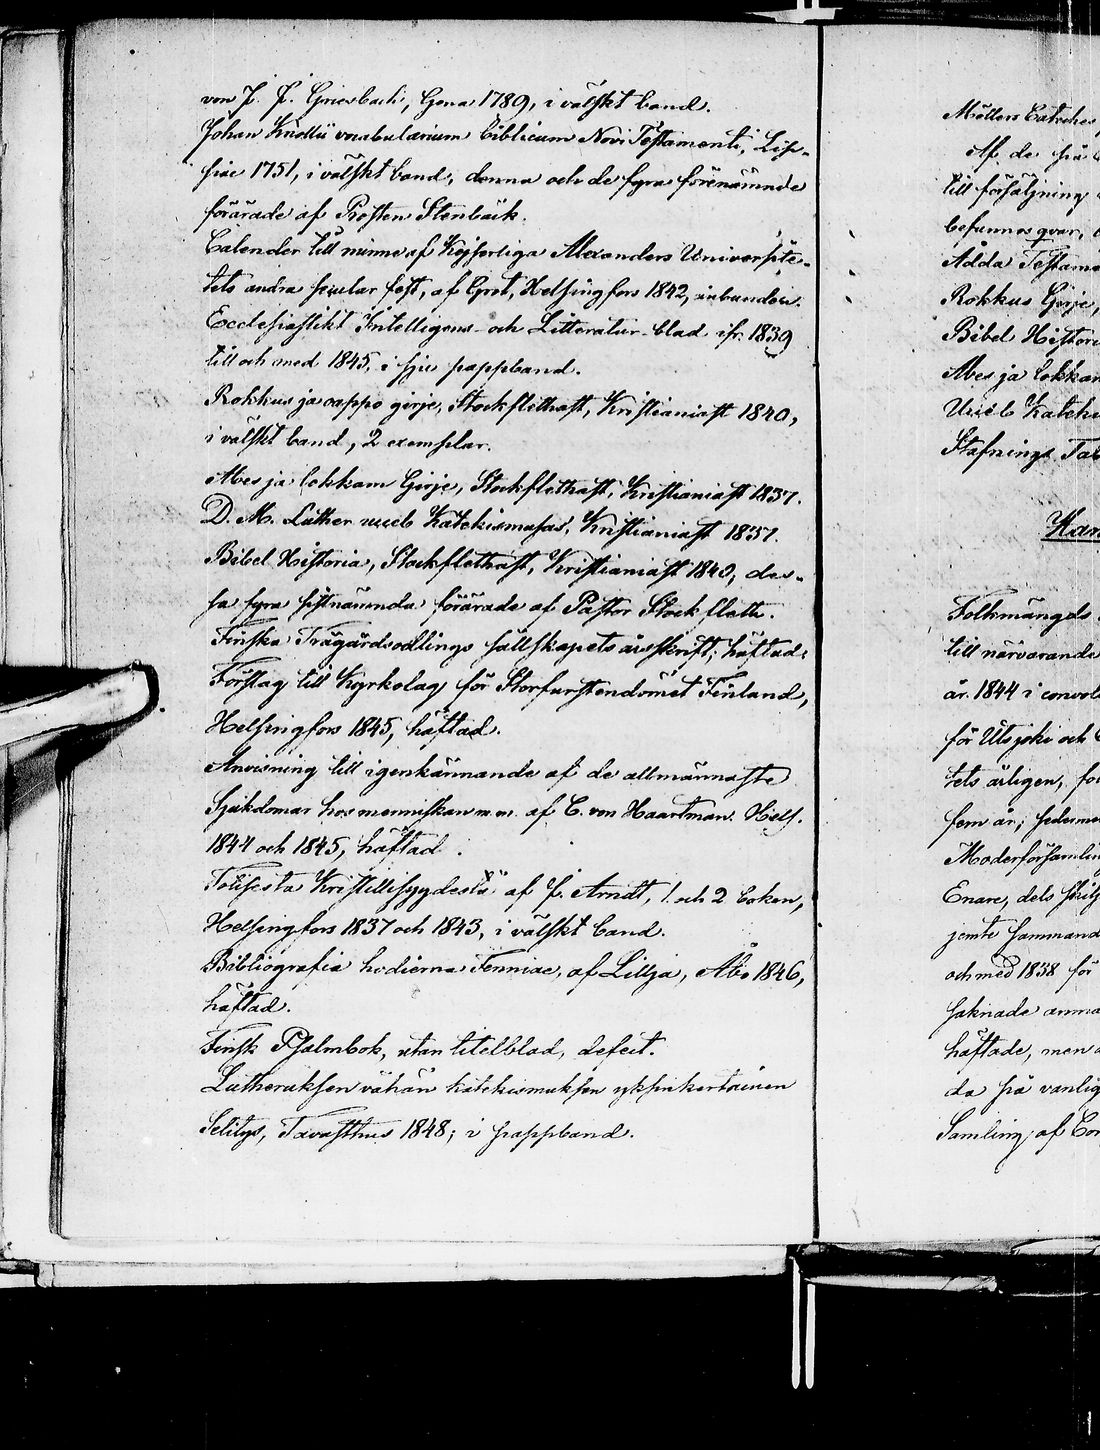 von J. J. Griesbach, Gena 1789, i välskt band.
Johan Knollii vocabularium biblicum Novi Testamenti, Lip-
siae 1751, i välskt band, denna och de fyra förenämnde
förärade af Prosten Stenbäck.
Calender till minne af Kejserliga Alexanders Universite-
tets andra secular fest, af Grot, Helsingfors 1842, inbunden.
Ecclesiastikt Intelligens- och Litteratur-blad ifr. 1839
till och med 1845, i sju pappband.
Rokkus ja oappo girje, Stockflethast, Kristianiast 1840,
i välskt band, 2 exemplar.
Abes ja lokkam Girje, Stockflethast, Kristianiast 1837.
D. M. Luther uucb Katekismusas, Kristianiast 1837.
Bibel Historia, Stockflethast, Kristianiast 1840, des-
sa fyra sistnämnda förärade af Pastor Stockfleth.
Finska Trägårdsodlings sällskapets årsskrift, häftad.
Förslag till Kyrkolag för Storfurstendömet Finland,
Helsingfors 1845, häftad.
Anvisning till igenkännande af de allmännaste
Sjukdomar hos menniskan m. m. af C. von Haartman. Helsf.
1844 och 1845, häftad.
Totisesta Kristillisyydestä af J. Arndt, 1. och 2 boken,
Helsingfors 1837 och 1843, i välskt band.
Bibliografia hodierna Fenniae, af Lillja, Åbo 1846,
häftad.
Finsk Psalmbok, utan titelblad, defect.
Lutheruksen vähän katekismuksen yksinkertainen
Selitys, Tavasthus 1848; i pappband.
Möllers Cateches
Af de på
till försäljning
befunnos qvar,
Ådda Testame
Rokkus Girje,
Bibel Histori
Abes ja lokkam
Uucb Kateki
Stafnings Tab
Kar
Folkmängds
till närvarande
år 1844 i convol
för Utsjoki och
tets årligen, fo
fem år; sederme
Moderförsamlin
Enare, dels skilj
jemte sammand
och med 1838 för
saknade anma
häftade, men
da på vanlig
Samling af Con